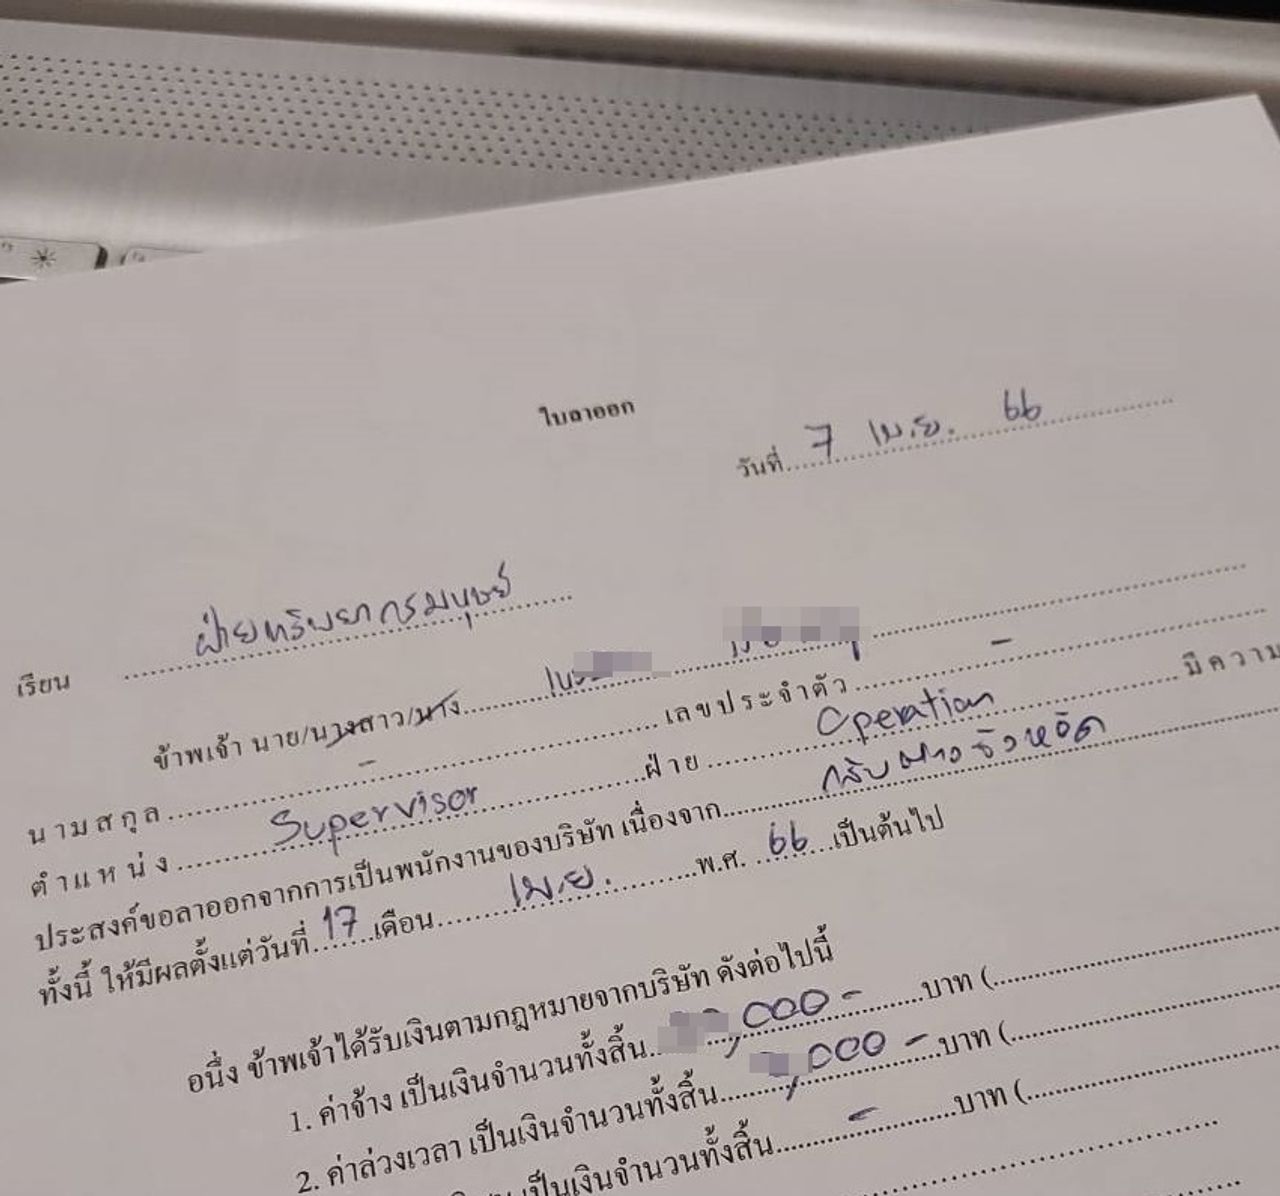 ใบลาออก
วันที่ 7 เม.ย. 66
เรียน ฝ่ายทรัพยากรมนุษย์
ข้าพเจ้า นาย/นางสาว/นาง
นามสกุล - เลขประจำตัว -
ตำแหน่ง Supervisor ฝ่าย Operation มีความ
ประสงค์ขอลาออกจากการเป็นพนักงานของบริษัท เนื่องจาก กลับต่างจังหวัด
ทั้งนี้ ให้มีผลตั้งแต่วันที่ 17 เดือน เม.ย. พ.ศ. 66 เป็นต้นไป
อนึ่ง ข้าพเจ้าได้รับเงินตามกฎหมายจากบริษัท ดังต่อไปนี้
1. ค่าจ้าง เป็นเงินจำนวนทั้งสิ้น ,000 - บาท (
2. ค่าล่วงเวลา เป็นเงินจำนวนทั้งสิ้น ,000 - บาท (
เป็นเงินจำนวนทั้งสิ้น - บาท (